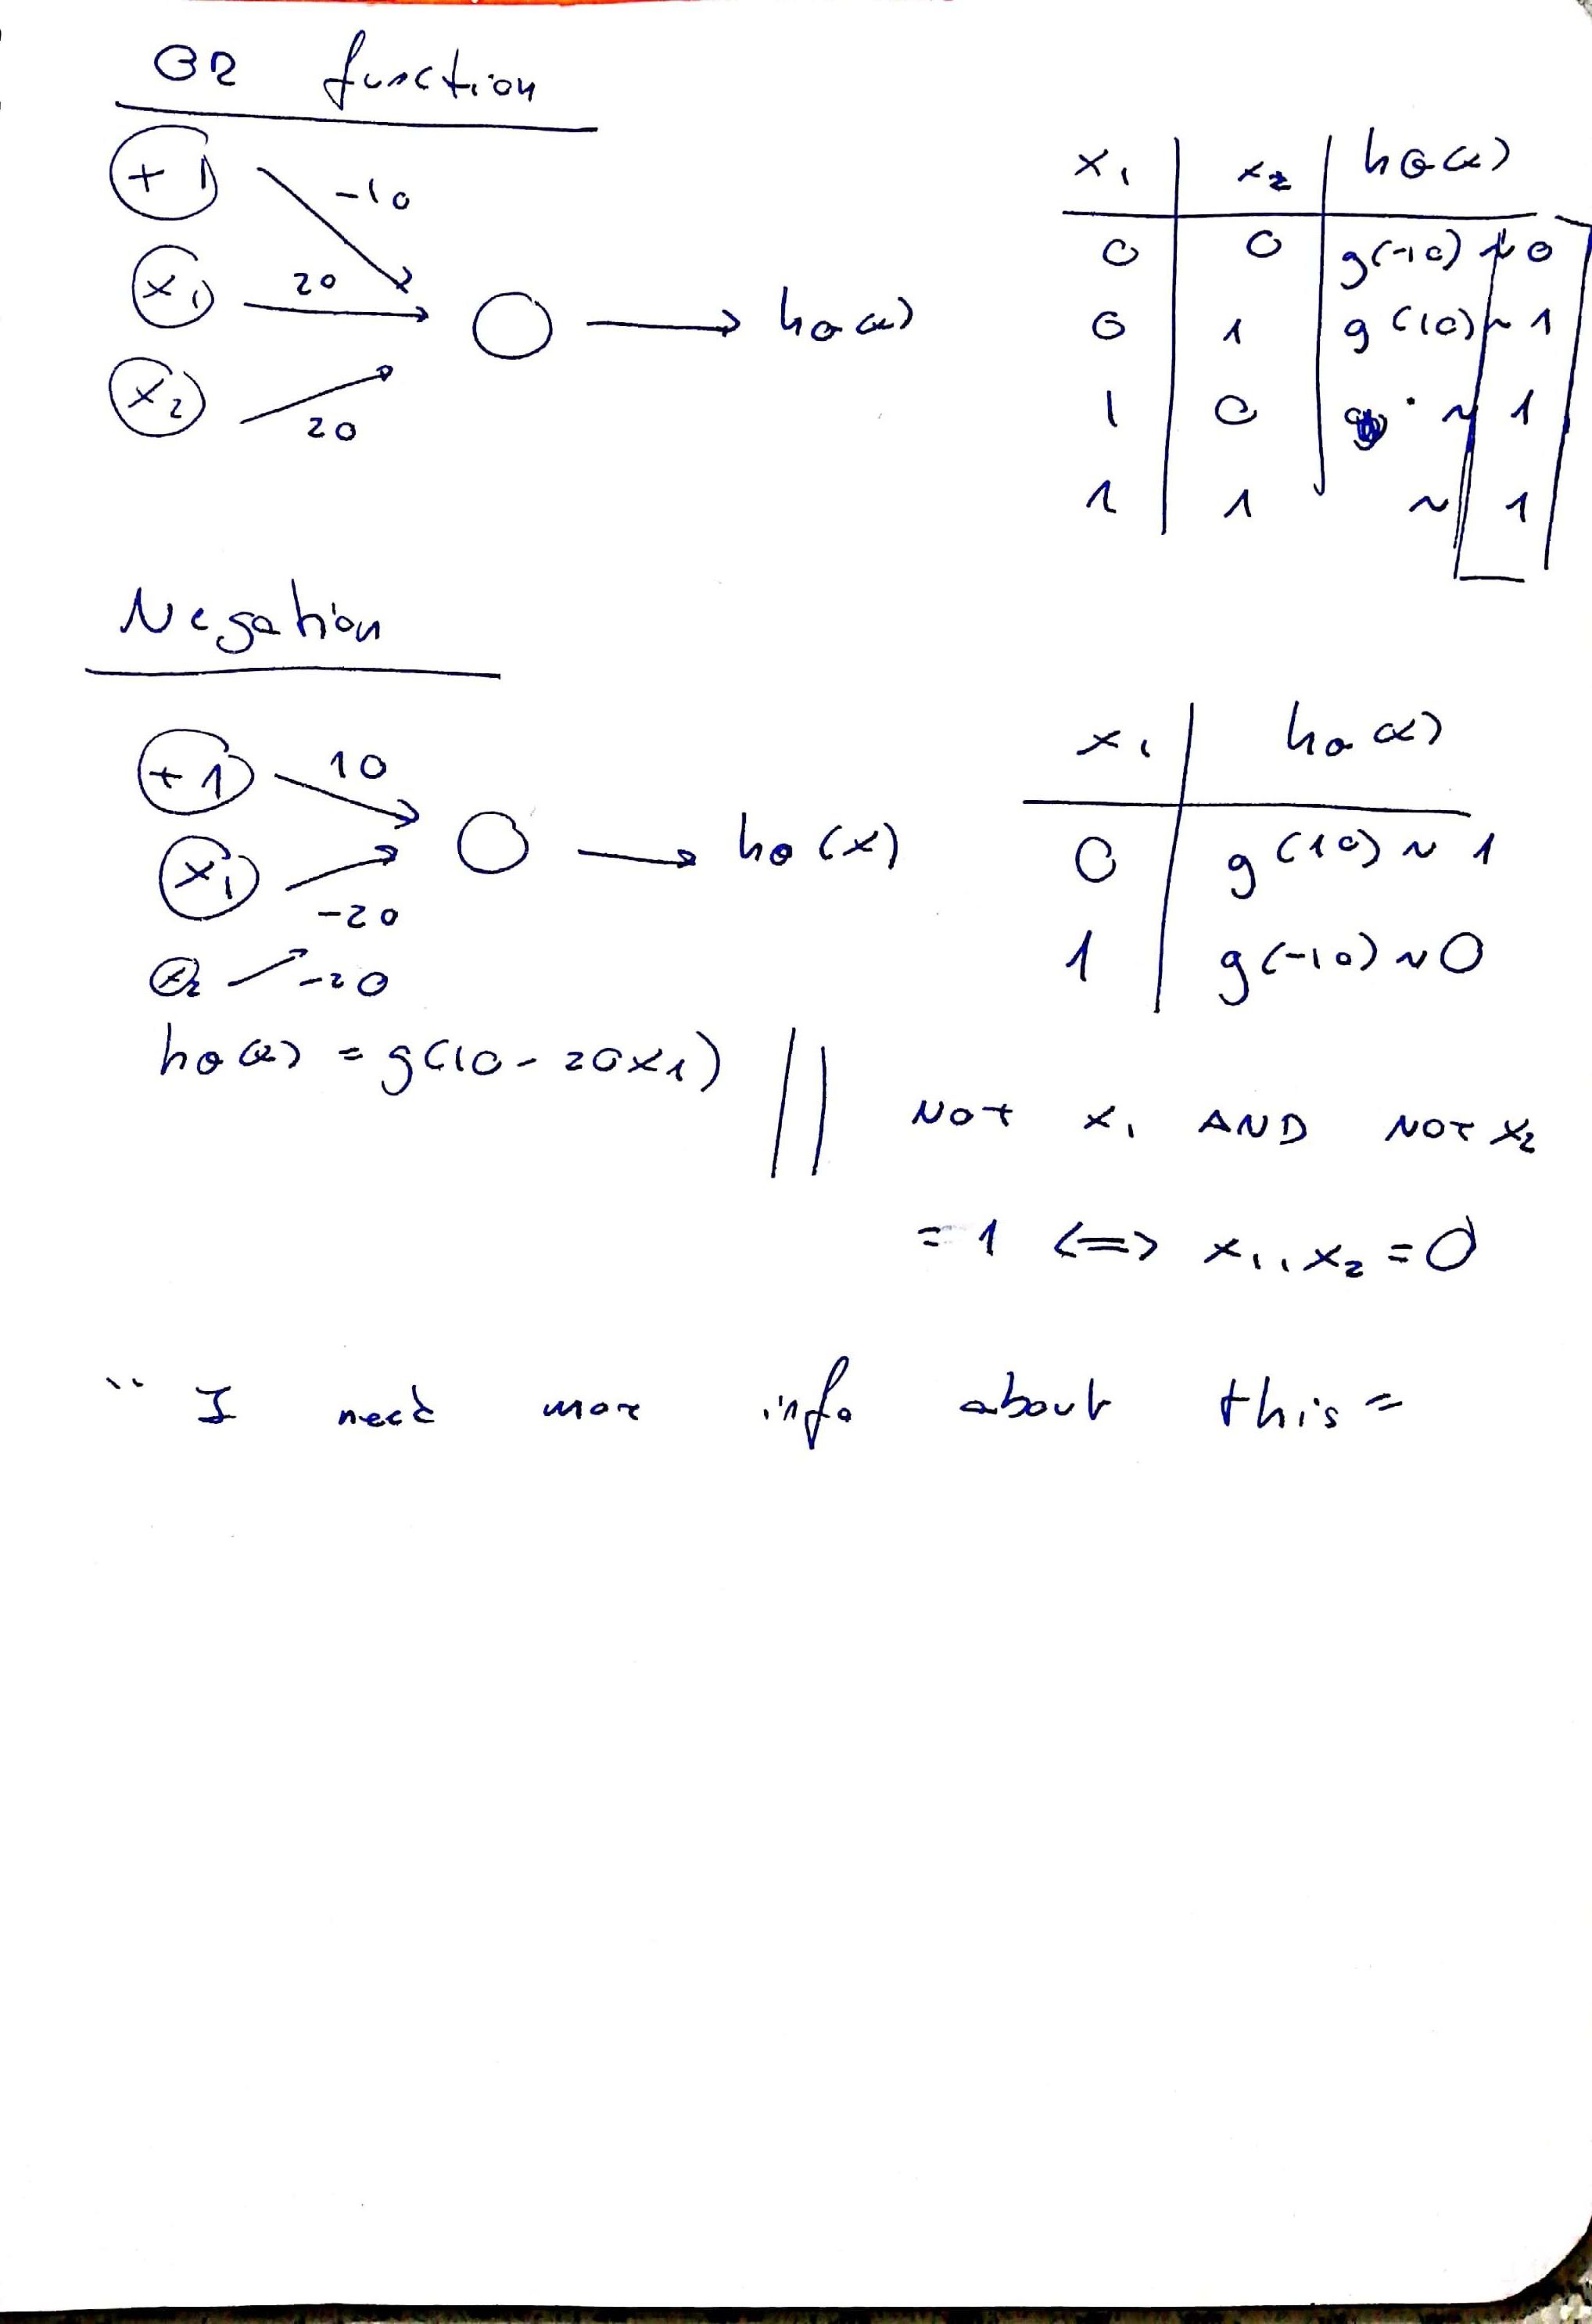 OR function
+1 -10
x1 20
x2 20
→ hθ(x)
x1 | x2 | hθ(x)
0 | 0 | g(-10) ~ 0
0 | 1 | g(10) ~ 1
1 | 0 | ~ 1
1 | 1 | ~ 1
Negation
+1 10
x1 -20
x2 -20
→ hθ(x)
x1 | hθ(x)
0 | g(10) ~ 1
1 | g(-10) ~ 0
hθ(x) = g(10 - 20x1) ||
NOT x1 AND NOT x2
= 1 <=> x1, x2 = 0
" I need more info about this =